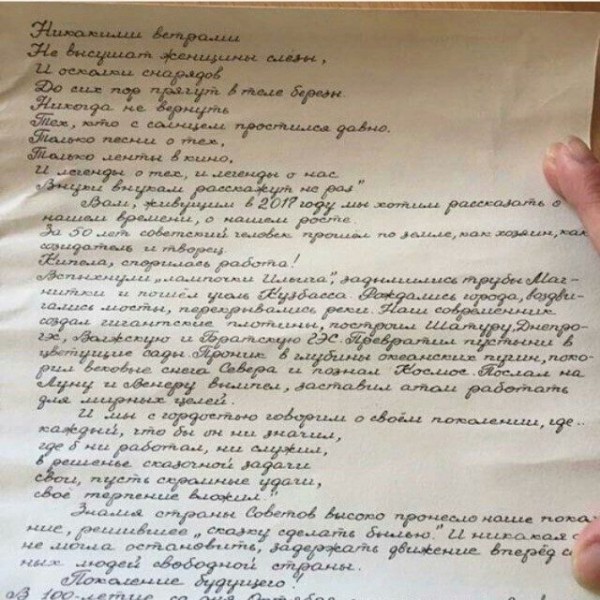 Никакими ветрами
Не высушат женщины слезы,
И осколки снарядов
До сих пор прячут в теле березы.
Никогда не вернуть
Тех, кто с солнцем простился давно.
Только песни о тех,
Только ленты в кино,
И легенды о тех, и легенды о нас
Внуки внукам расскажут не раз"
Вам, живущим в 2017 году мы хотим рассказать о
нашем времени, о нашем росте.
За 50 лет советский человек прошёл по земле, как хозяин, как
созидатель и творец.
Кипела, спорилась работа!
Вспыхнули „лампочки Ильича", задымились трубы Маг-
нитки и пошёл уголь Кузбасса. Рождались города, воздви-
гались мосты, перекрывались реки. Наш современник
создал гигантские плотины, построил Шатуру, Днепро-
гэс, Волжскую и Братскую ГЭС. Превратил пустыни в
цветущие сады. Проник в глубины океанских пучин, поко-
рил вековые снега Севера и познал Космос. Послал на
Луну и Венеру вымпел, заставил атом работать
для мирных целей.
И мы с гордостью говорим о своём поколении, где..
каждый, что бы он ни значил,
где б ни работал, ни служил,
в решенье сказочной задачи
свои, пусть скромные удачи,
своё терпение вложил."
Знамя страны Советов высоко пронесло наше поколе
ние, решившее „сказку сделать былью." И никакая с
не могла остановить, задержать движение вперёд с
ных людей свободной страны.
Поколение будущего!
В 100-летие со дня